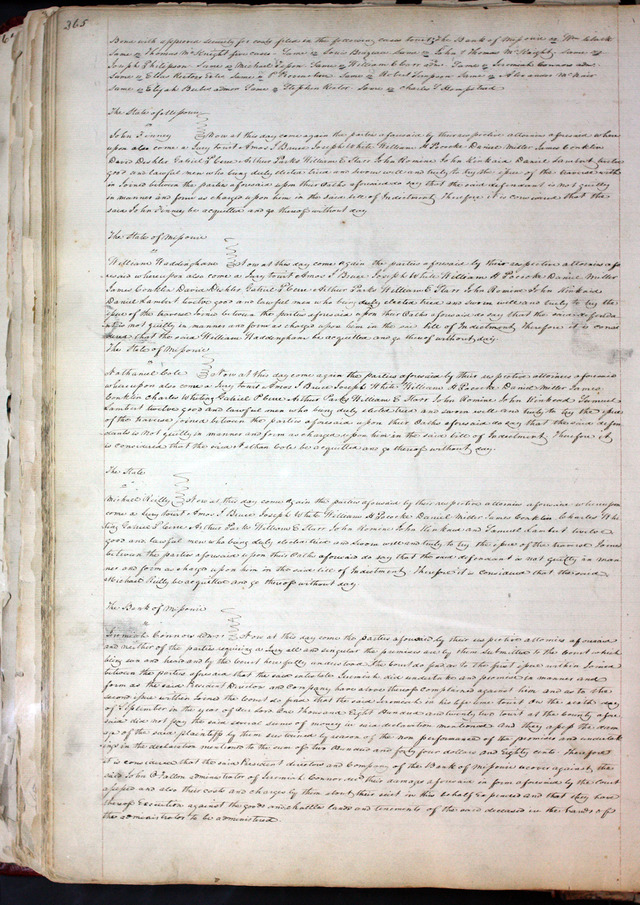 365
Bond with approved security for costs filed in the following cases towit The Bank of Missouri vs Wm Clark
Same vs Thomas McKnight five cases Same vs Louis Brazeau Same vs John & Thomas McKnight Same vs
Joseph Philipson Same vs Michael Tison Same vs William C Carr adr. Same vs Jeremiah Connors adr
Same vs Elias Rectors Exts Same vs P Same vs Robert Simpson Same vs Alexander McNair
Same vs Elijah Beebes admor Same vs Stephen Rector Same vs Charles S Hempstead
The State of Missouri
vs
John Finney Now at this day come again the parties aforesaid by their respective attornies aforesaid where
upon also come a Jury towit Amos J Bruce Joseph White William H Pococke Daniel Miller James Conklin
David Deshler Gabriel P Cerre Arthur Parks William C Starr John Romine John Kinkaid Daniel Lambert twelve
good and lawful men who being duly elected tried and sworn well and truly to try the issue of the traverse with
in Joined between the parties aforesaid upon their Oaths aforesaid do say that the said defendant is not guilty
in manner and form as charged upon him in the said bill of Indictment Therefore it is considered that the
said John Finney be acquitted and go thereof without day
The State of Missouri
vs
William Waddingham Now at this day come again the parties aforesaid by their respective attornies afo
resaid whereupon also come a Jury towit Amos J Bruce Joseph White William H Pococke Daniel Miller
James Conklin David Deshler Gabriel P Cerre Arthur Parks William C Starr John Romine John Kinkaid
Daniel Lambert twelve good and lawful men who being duly elected tried and sworn well and truly to try the
issue of the traverse Joined between the parties aforesaid upon their Oaths aforesaid do say that the said defend
ant is not guilty in manner and form as charged upon him in the said bill of Indictment Therefore it is consi
dered that the said William Waddingham be acquitted and go thereof without day.
The State of Missouri
vs
Nathaniel Cole Now at this day come again the parties aforesaid by their respective attornies aforesaid
whereupon also come a Jury towit Amos J Bruce Joseph White William H Pococke Daniel Miller James
Conklin Charles Whiting Gabriel P Cerre Arthur Parks William C Starr John Romine John Kinkead Samuel
Lambert twelve good and lawful men who being duly elected tried and sworn well and truly to try the issue
of the traverse joined between the parties aforesaid upon their Oaths aforesaid do say that the said defen
dants is Not guilty in manner and form as charged upon him in the said bill of Indictment Therefore it
is considered that the said Nathan Cole be acquitted and go thereof without day.
The State
vs
Michael Reilly Now at this day come again the parties aforesaid by their respective attornies aforesaid whereupon
come a Jury towit Amos J Bruce Joseph White William H Pococke Daniel Miller James Conklin Charles Whi
ting Gabriel P Cerre Arthur Parks William C Starr John Romine John Kinkead and Samuel Lambert twelve
good and lawful men who being duly elected tried and sworn well and truly to try the issue of the traverse Joined
between the parties aforesaid upon their Oaths aforesaid do say that the said defendant is not guilty in man
ner and form as charged upon him in the said bill of Indictment Therefore it is considered that the said
Michael Reilly be acquitted and go thereof without day
The Bank of Missouri
vs
Jeremiah Connors admr Now at this day come the parties aforesaid by their respective attornies aforesaid
and neither of the parties requiring a Jury all and singular the premises are by them submitted to the Court which
being seen and heard and by the Court here fully understood The Court do find as to the first issue within Joined
between the parties aforesaid that the said intestate Jeremiah did undertake and promise in manner and
form as the said President Director and Company have above thereof complained against him and as to the
second issue within Joined the Court do find that the said Jeremiah in his life time towit On the day
of September in the year of our Lord One Thousand Eight Hundred and twenty two towit at the County afore
said did not pay the said several sums of money in said declaration mentioned and they assess the dama
ges of the said plaintiffs by them sustained by reason of the non performance of the promises and undertak
ings in the declaration mentioned to the sum of two Hundred and forty four dollars and Eighty cents Therefore
it is considered that the said President directors and Company of the Bank of Missouri recover against the
said John O'Fallon administrator of Jeremiah Connor decd their damages aforesaid in form aforesaid by the Court
assessed and also their costs and charges by them about their suit in this behalf Expended and that they have
thereof Execution against the goods and chattles lands and tenements of the said deceased in the hands of
the administrator to be administered